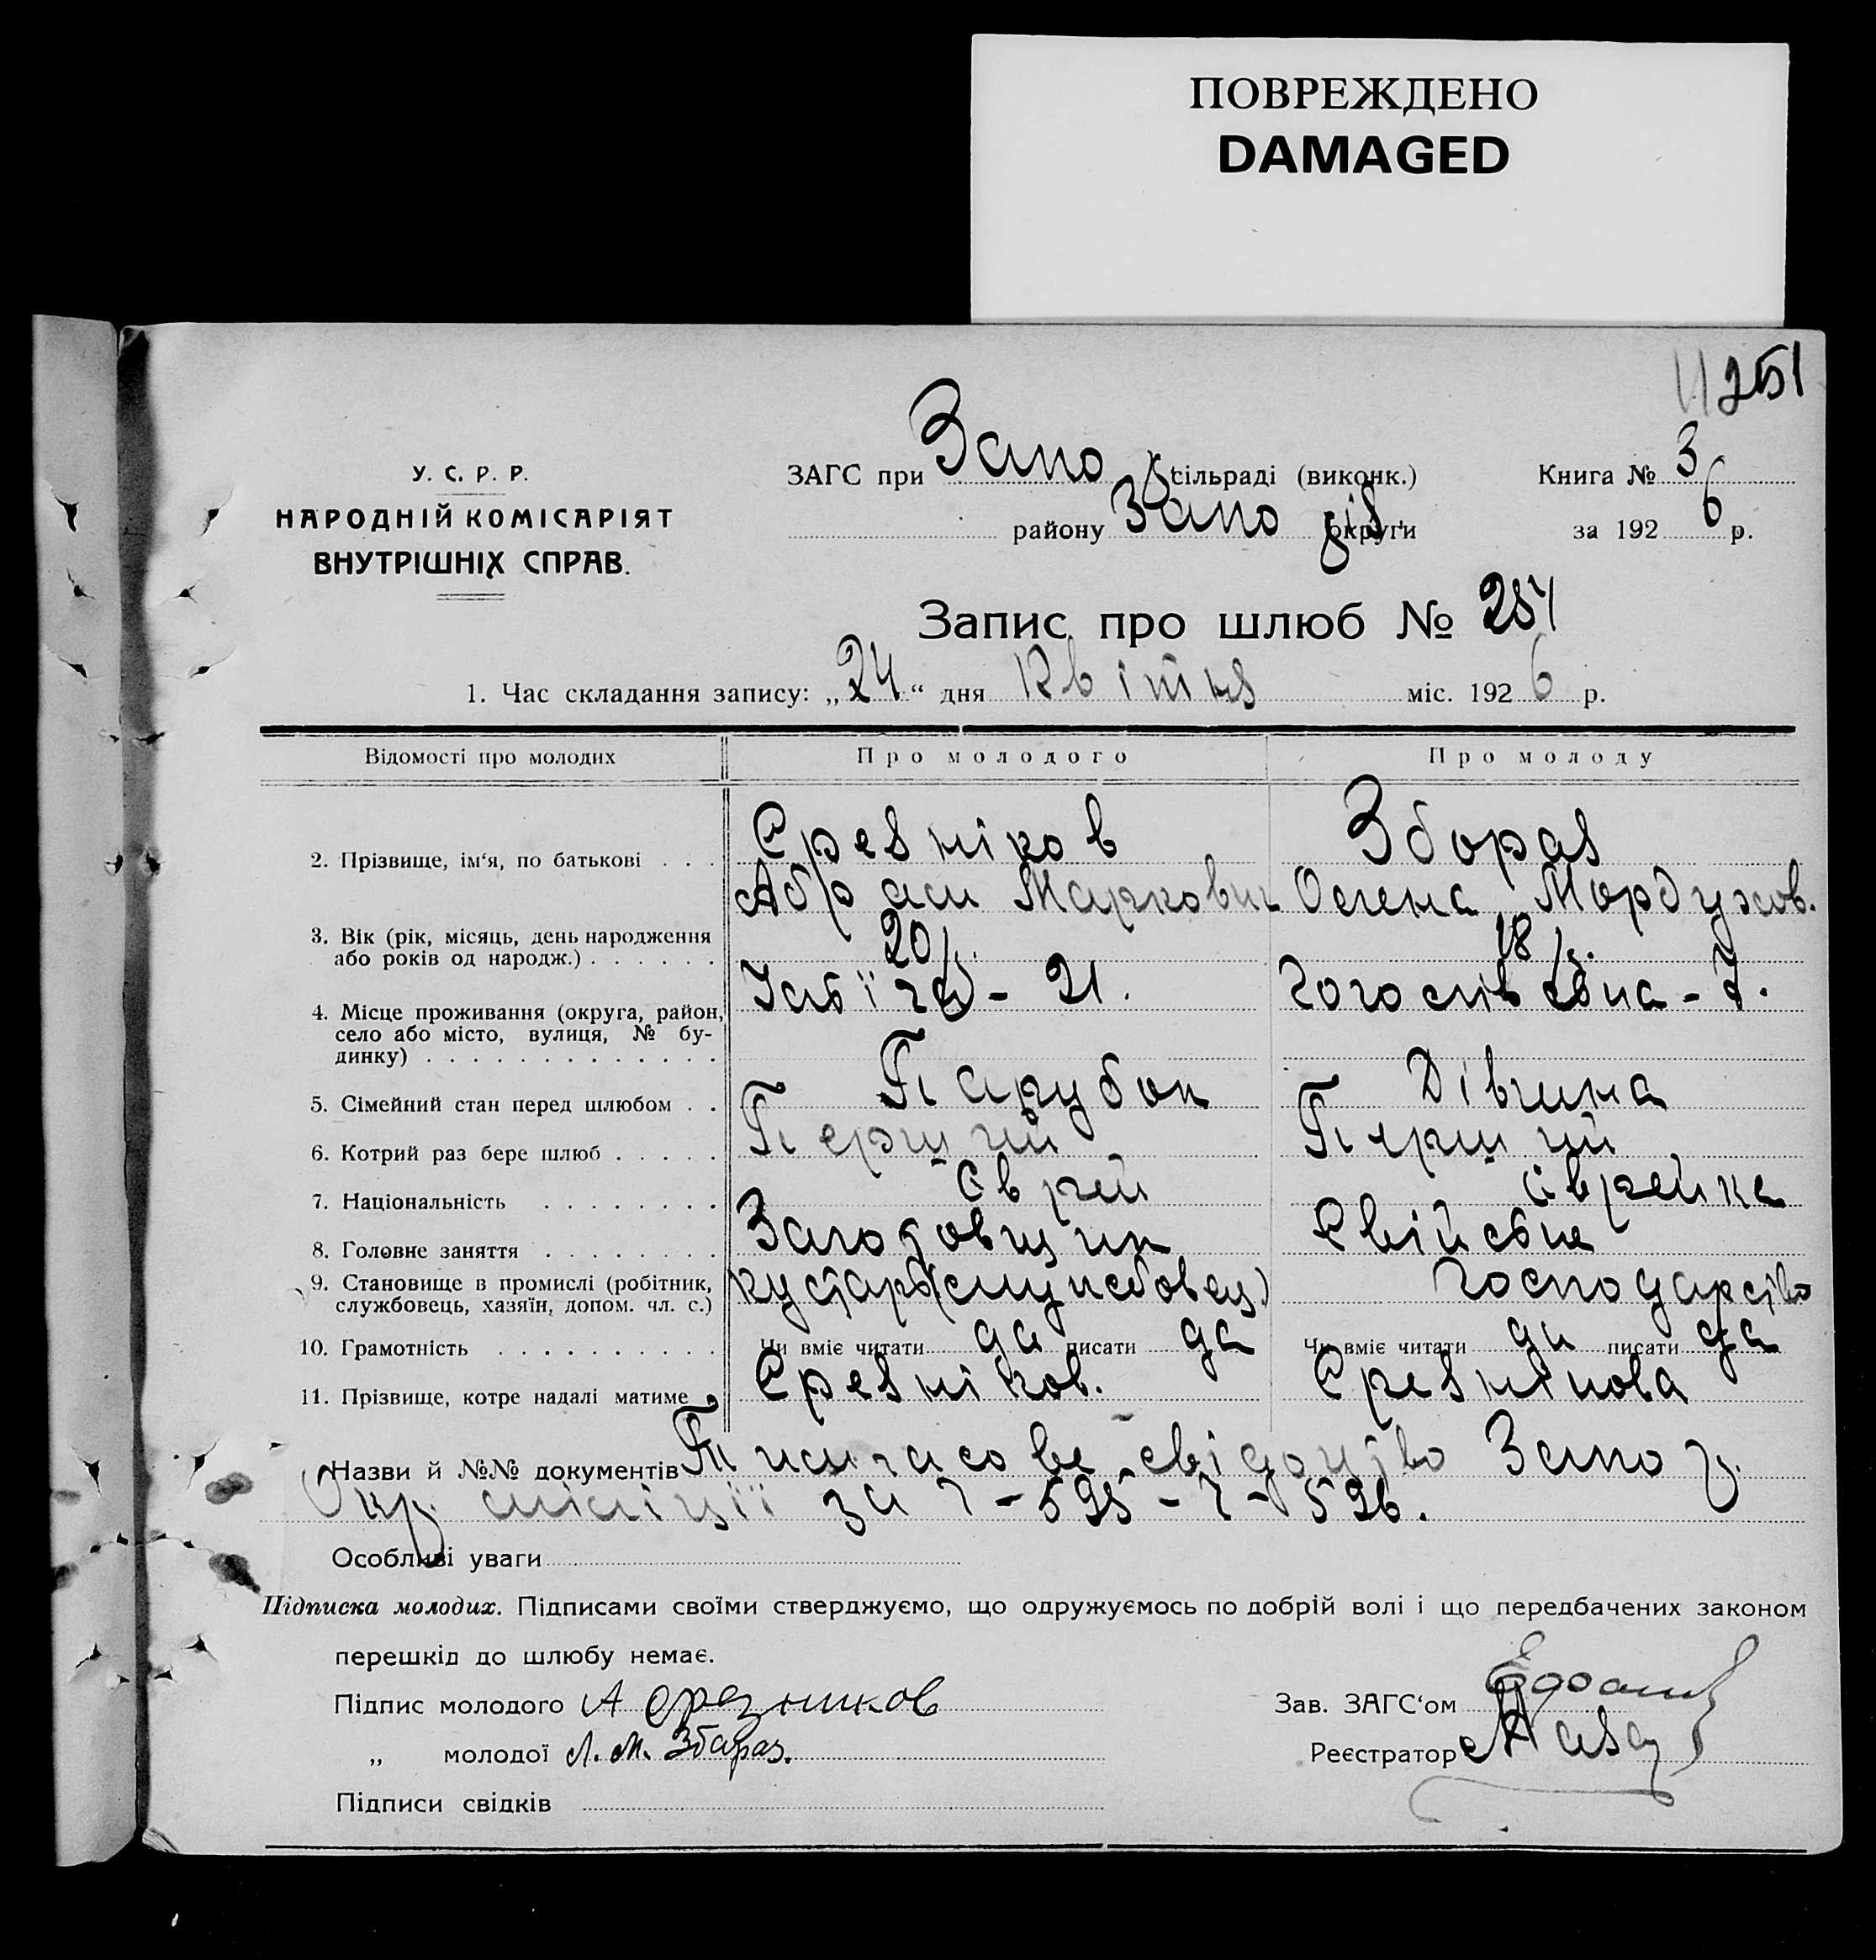 ПОВРЕЖДЕНО
DAMAGED
251
У. С. Р. Р.
НАРОДНІЙ КОМІСАРІЯТ
ВНУТРІШНІХ СПРАВ.
ЗАГС при Запо сільраді (виконк.)
району Запо округи
Книга № 3
за 192 6 р.
Запис про шлюб № 251
1. Час складання запису: „24“ дня Квітня міс. 192 6 р.
Відомості про молодих Про молодого Про молоду
2. Прізвище, ім‘я, по батькові . . . Срезніков Збораз
Абрам Маркович Мордухов.
3. Вік (рік, місяць, день народження
або років од народж.) . . . . . . 20 р. 18 р.
4. Місце проживання (округа, район,
село або місто, вулиця, № бу-
динку) . . . . . . . . . . . . . - 21. - 7.
5. Сімейний стан перед шлюбом . . Парубок Дівчина
6. Котрий раз бере шлюб . . . . . Перший Перший
7. Національність . . . . . . . . Єврей Єврейка
8. Головне заняття . . . . . . . . Заготовщик
9. Становище в промислі (робітник,
службовець, хазяїн, допом. чл. с.) господарство
10. Грамотність . . . . . . . . . . Чи вміє читати да писати да Чи вміє читати да писати да
11. Прізвище, котре надалі матиме Срезніков. Срезнікова
Назви й №№ документів Тимчасове свідоцтво Запо
Окр. міліції за 7 - 595 - 7 - 596.
Особливі уваги
Підписка молодих. Підписами своїми стверджуємо, що одружуємось по добрій волі і що передбачених законом
перешкід до шлюбу немає.
Підпис молодого А Срезников
„ молодої Л. М. Збараз.
Підписи свідків
Зав. ЗАГС‘ом
Реєстратор